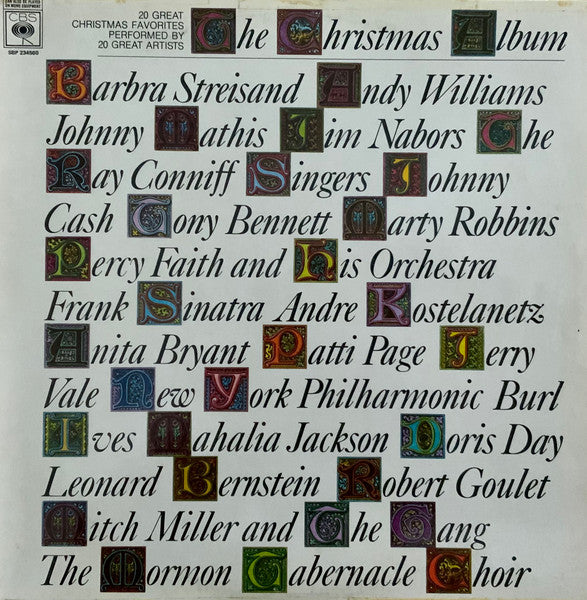 CAN ALSO BE PLAYED
ON MONO EQUIPMENT
CBS
SBP 234560
20 GREAT
CHRISTMAS FAVORITES
PERFORMED BY
20 GREAT ARTISTS
The Christmas Album
Barbra Streisand Andy Williams
Johnny Mathis Jim Nabors The
Ray Conniff Singers Johnny
Cash Tony Bennett Marty Robbins
Percy Faith and His Orchestra
Frank Sinatra Andre Kostelanetz
Anita Bryant Patti Page Jerry
Vale New York Philharmonic Burl
Ives Mahalia Jackson Doris Day
Leonard Bernstein Robert Goulet
Mitch Miller and The Gang
The Mormon Tabernacle Choir